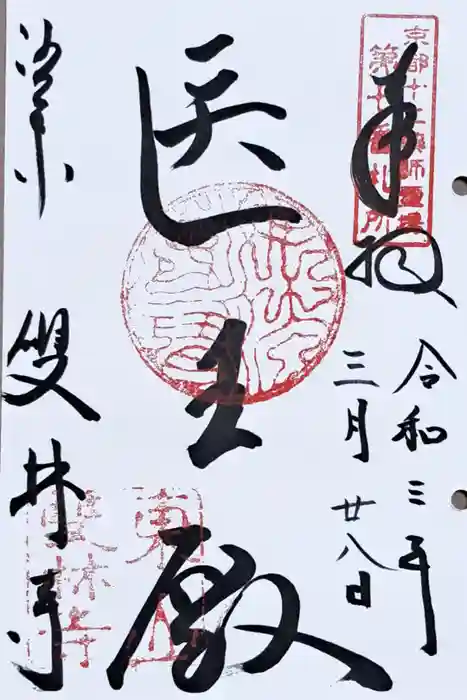 京都十二薬師霊場
第七番札所
奉拝
令和三年
三月廿八日
医王殿
洛東
雙林寺
東山
雙林寺